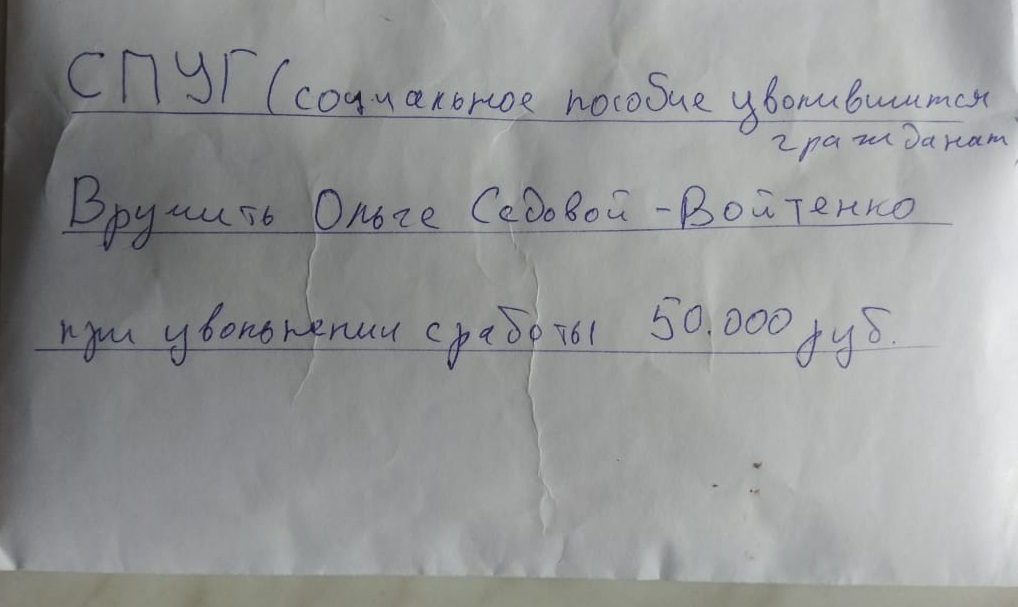 СПУГ (социальное пособие уволившимся
гражданам)
Вручить Ольге Седовой-Войтенко
при увольнении с работы 50.000 руб.